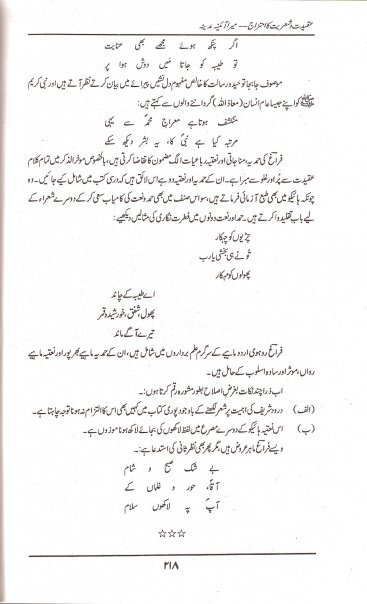 عقیدت و شعریت کا امتزاج — میرا آئینہ مدینہ
اگر پنکھ ہوتے مجھے بھی عنایت
تو طیبہ کو جاتا میں دوشِ ہوا پر
موصوف جابجا توحید و رسالت کا خالص مفہوم دل نشیں پیرائے میں بیان کرتے نظر آتے ہیں اور نبی کریم
ﷺ کو اپنے جیسا عام انسان (معاذ اللہ) گرداننے والوں سے کہتے ہیں:
منکشف ہوتا ہے معراجِ محمدؐ سے یہی
مرتبہ کیا ہے نبیؐ کا، یہ بشر دیکھ سکے
فراغؔ کی حمدیہ مناجاتی اور نعتیہ رباعیات الگ مضمون کا تقاضا کرتی ہیں، بالخصوص موخر الذکر میں تمام کلام
عقیدت سے پُر اور غلو سے مبرا ہے۔ ان کے حمدیہ اور نعتیہ دوہے اس لائق ہیں کہ درسی کتب میں شامل کیے جائیں۔ وہ
چونکہ ہائیکو میں بھی طبع آزمائی فرماتے ہیں، سو اس صنف میں بھی حمد و نعت کی کامیاب سعی کر کے دوسرے شعراء کے
لیے بابِ تقلید وا کرتے ہیں۔ حمد اور نعت دونوں میں فطرت نگاری کی مثالیں دیکھیے:
چڑیوں کو چہکار
تُو نے ہی بخشی یارب
پھولوں کو مہکار
اے طیبہ کے چاند
پھول، شفق، خورشید و قمر
تیرے آگے ماند
فراغؔ روہوی اردو ماہیے کے سرگرم علم برداروں میں شامل ہیں، ان کے حمدیہ ماہیے بھرپور اور نعتیہ ماہیے
رواں، موثر اور سادہ اسلوب کے حامل ہیں۔
اب ذرا چند نکات بغرضِ اصلاح بطور مشورہ رقم کرتا ہوں:۔
(الف) درود شریف کی اہمیت پر شعر لکھنے کے باوجود پوری کتاب میں کہیں بھی اس کا التزام نہ ہونا توجہ چاہتا ہے۔
(ب) اس نعتیہ ہائیکو کے دوسرے مصرع میں لفظ لاکھوں کی بجائے لاکھ ہونا موزوں ہے۔
ویسے فراغؔ ماہرِ عروض ہیں، مگر پھر بھی نظرِ ثانی کی استدعا ہے:۔
بے شک صبح و شام
آقاؐ، حور و غلماں کے
آپؐ پہ لاکھوں سلام
☆☆☆
۲۱۸